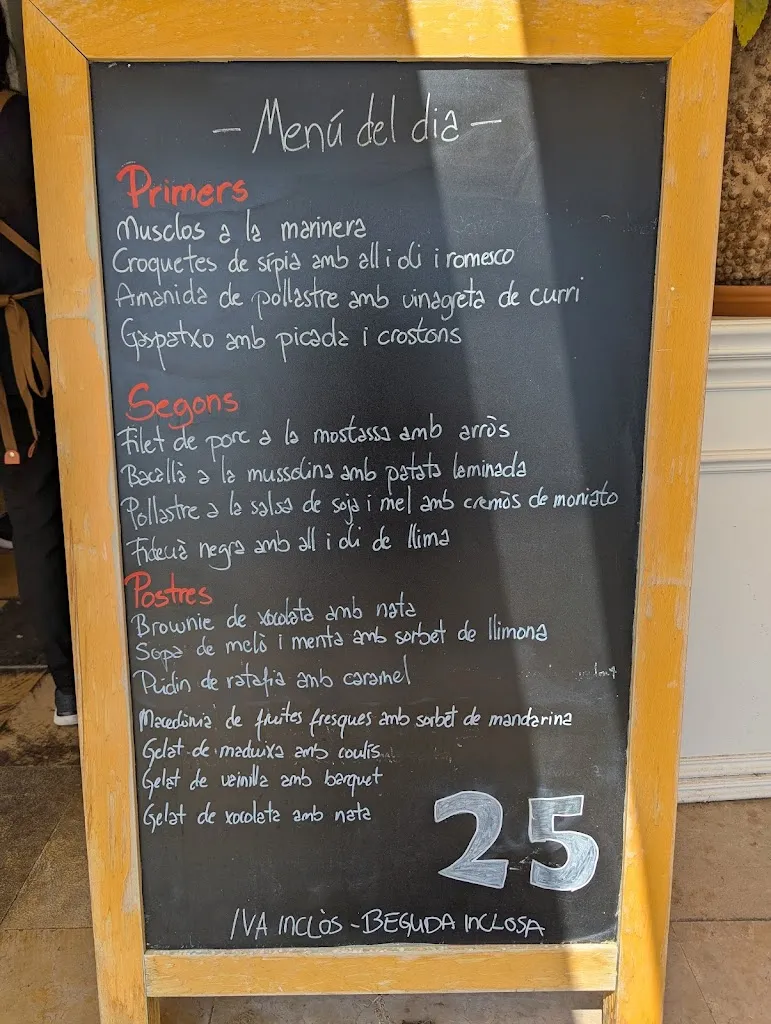 - Menú del dia -
Primers
Musclos a la marinera
Croquetes de sípia amb all i oli i romesco
Amanida de pollastre amb vinagreta de curri
Gaspatxo amb picada i crostons
Segons
Filet de porc a la mostassa amb arròs
Bacallà a la mussolina amb patata laminada
Pollastre a la salsa de soja i mel amb cremòs de moniato
Fideuà negra amb all i oli de llima
Postres
Brownie de xocolata amb nata
Sopa de meló i menta amb sorbet de llimona
Púdin de ratafia amb caramel
Macedònia de fruites fresques amb sorbet de mandarina
Gelat de maduixa amb coulis
Gelat de vainilla amb barquet
Gelat de xocolata amb nata
25
IVA INCLÒS - BEGUDA INCLOSA